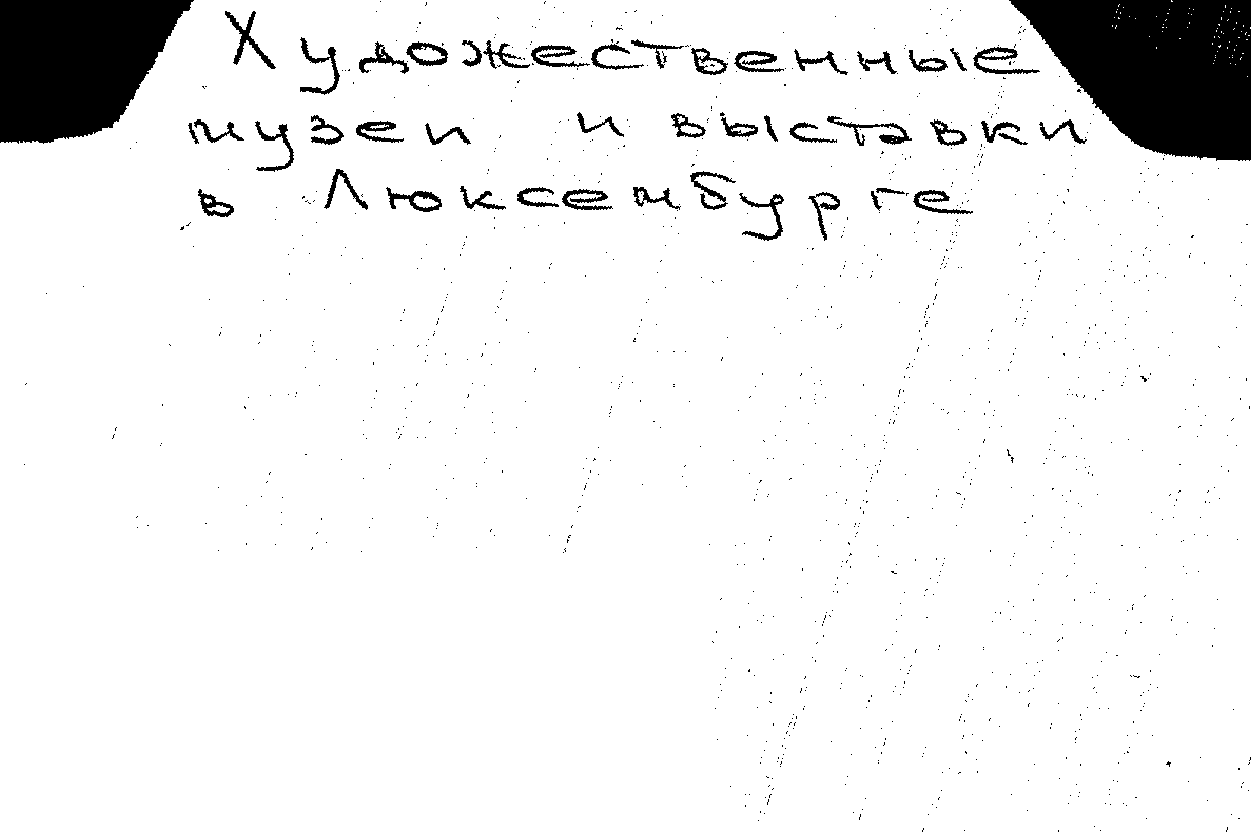 Художественные
музеи и выставки
в Люксембурге